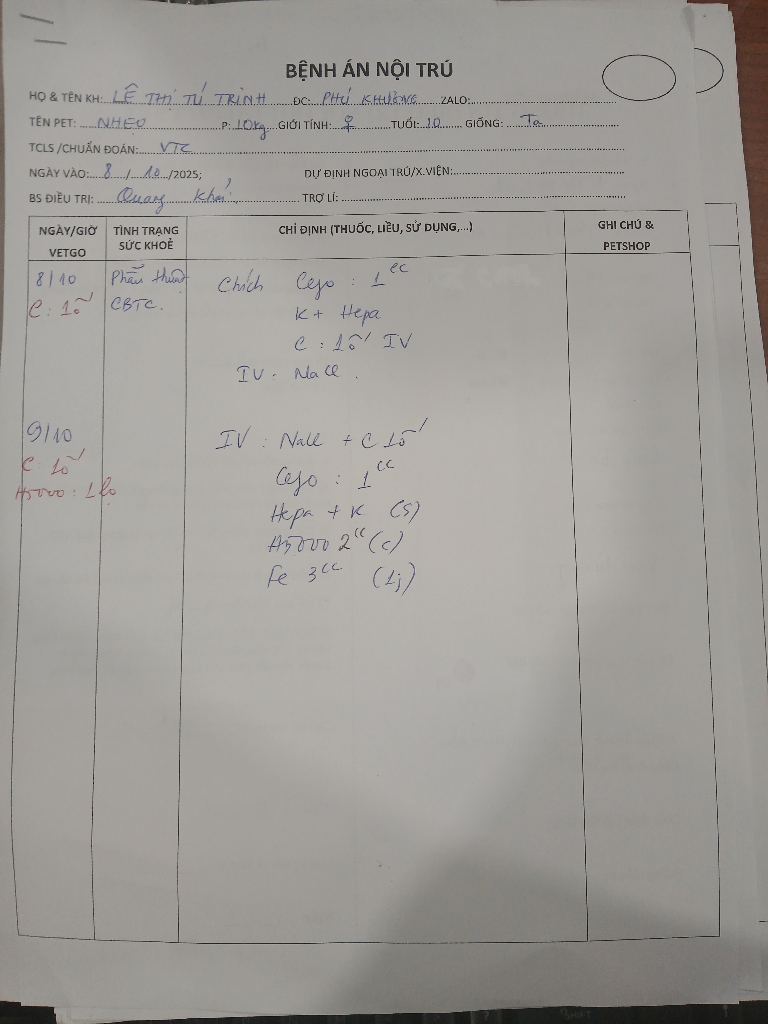 BỆNH ÁN NỘI TRÚ
HỌ & TÊN KH: LÊ THỊ TÚ TRINH ĐC: PHÚ KHƯƠNG ZALO:
TÊN PET: NHẸO P: 10kg GIỚI TÍNH: ♀ TUỔI: 10 GIỐNG: Ta
TCLS /CHUẨN ĐOÁN: VTC
NGÀY VÀO: 8 / 10 /2025; DỰ ĐỊNH NGOẠI TRÚ/X.VIỆN:
BS ĐIỀU TRỊ: Quang Khải TRỢ LÍ:
NGÀY/GIỜ VETGO
TÌNH TRẠNG SỨC KHOẺ
CHỈ ĐỊNH (THUỐC, LIỀU, SỬ DỤNG,...)
GHI CHÚ & PETSHOP
8/10 Phẫu thuật Chích Cefo : 1cc
C : 1ố CBTC. K + Hepa
C : 1ố IV
IV. NaCl.
9/10 IV : NaCl + C 1ố
C : 1ố Cefo : 1cc
H5000 : 1 lọ Hepa + K (S)
H5000 2cc (C)
Fe 3cc (1j)